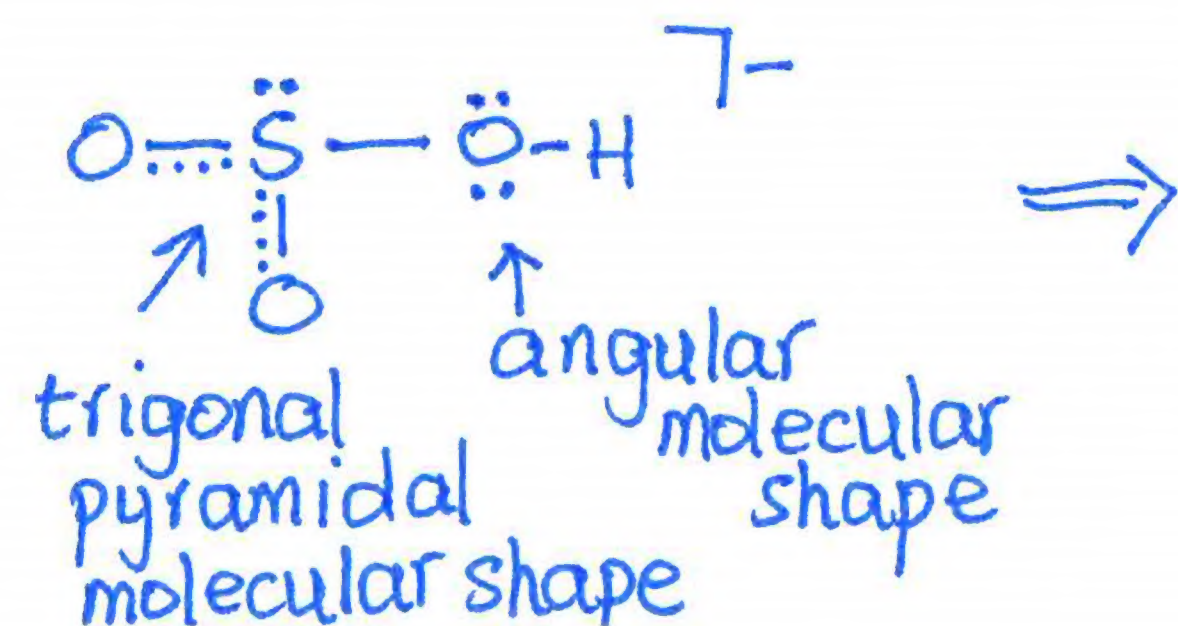 O S O-H ]-
O
trigonal
pyramidal
molecular shape
angular
molecular
shape